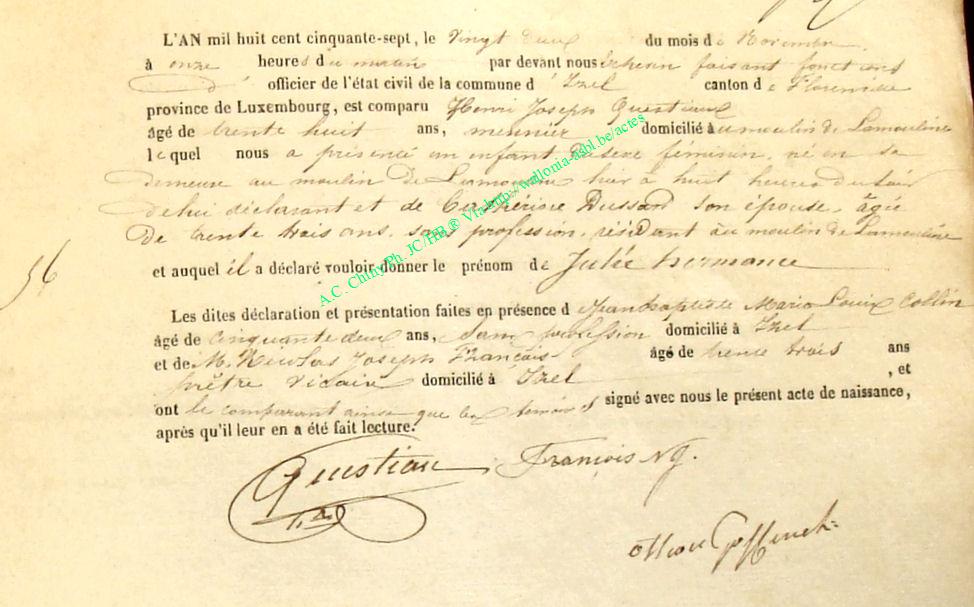 L'AN mil huit cent cinquante-sept, le Vingt deux du mois de Novembre
à onze heures du matin par devant nous échevin faisant fonctions
officier de l'état civil de la commune d' Izel canton de Florenville
province de Luxembourg, est comparu Henri Joseph Questiaux
âgé de trente huit ans, meunier domicilié au moulin de Lamouline
lequel nous a présenté un enfant du sexe féminin, né en sa
demeure au moulin de Lamouline hier à huit heures du soir
de lui déclarant et de Catherine Dussard son épouse, âgée
De trente trois ans, sans profession, résidant au moulin de Lamouline
56
et auquel il a déclaré vouloir donner le prénom de Julie hermance
Les dites déclaration et présentation faites en présence d Jean baptiste Marie Louis Collin
âgé de Cinquante deux ans, Sans profession domicilié à Izel
et de M. Nicolas Joseph François âgé de trente trois ans
prêtre vicaire domicilié à Izel , et
ont le comparant ainsi que les témoins signé avec nous le présent acte de naissance,
après qu'il leur en a été fait lecture.
Questiau François NJ.
A.C. Chiny Ph. JC/HB® Via http://wallonia-asbl.be/actes